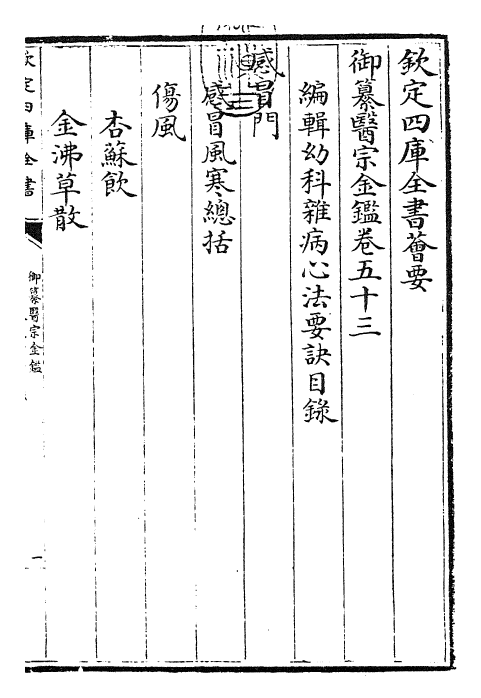 欽定四庫全書薈要
御纂醫宗金鑑卷五十三
編輯幼科雜病心法要訣目錄
感冒門
感冒風寒總括
傷風
杏蘇飲
金沸草散
欽定四庫全書
御纂醫宗金鑑
一